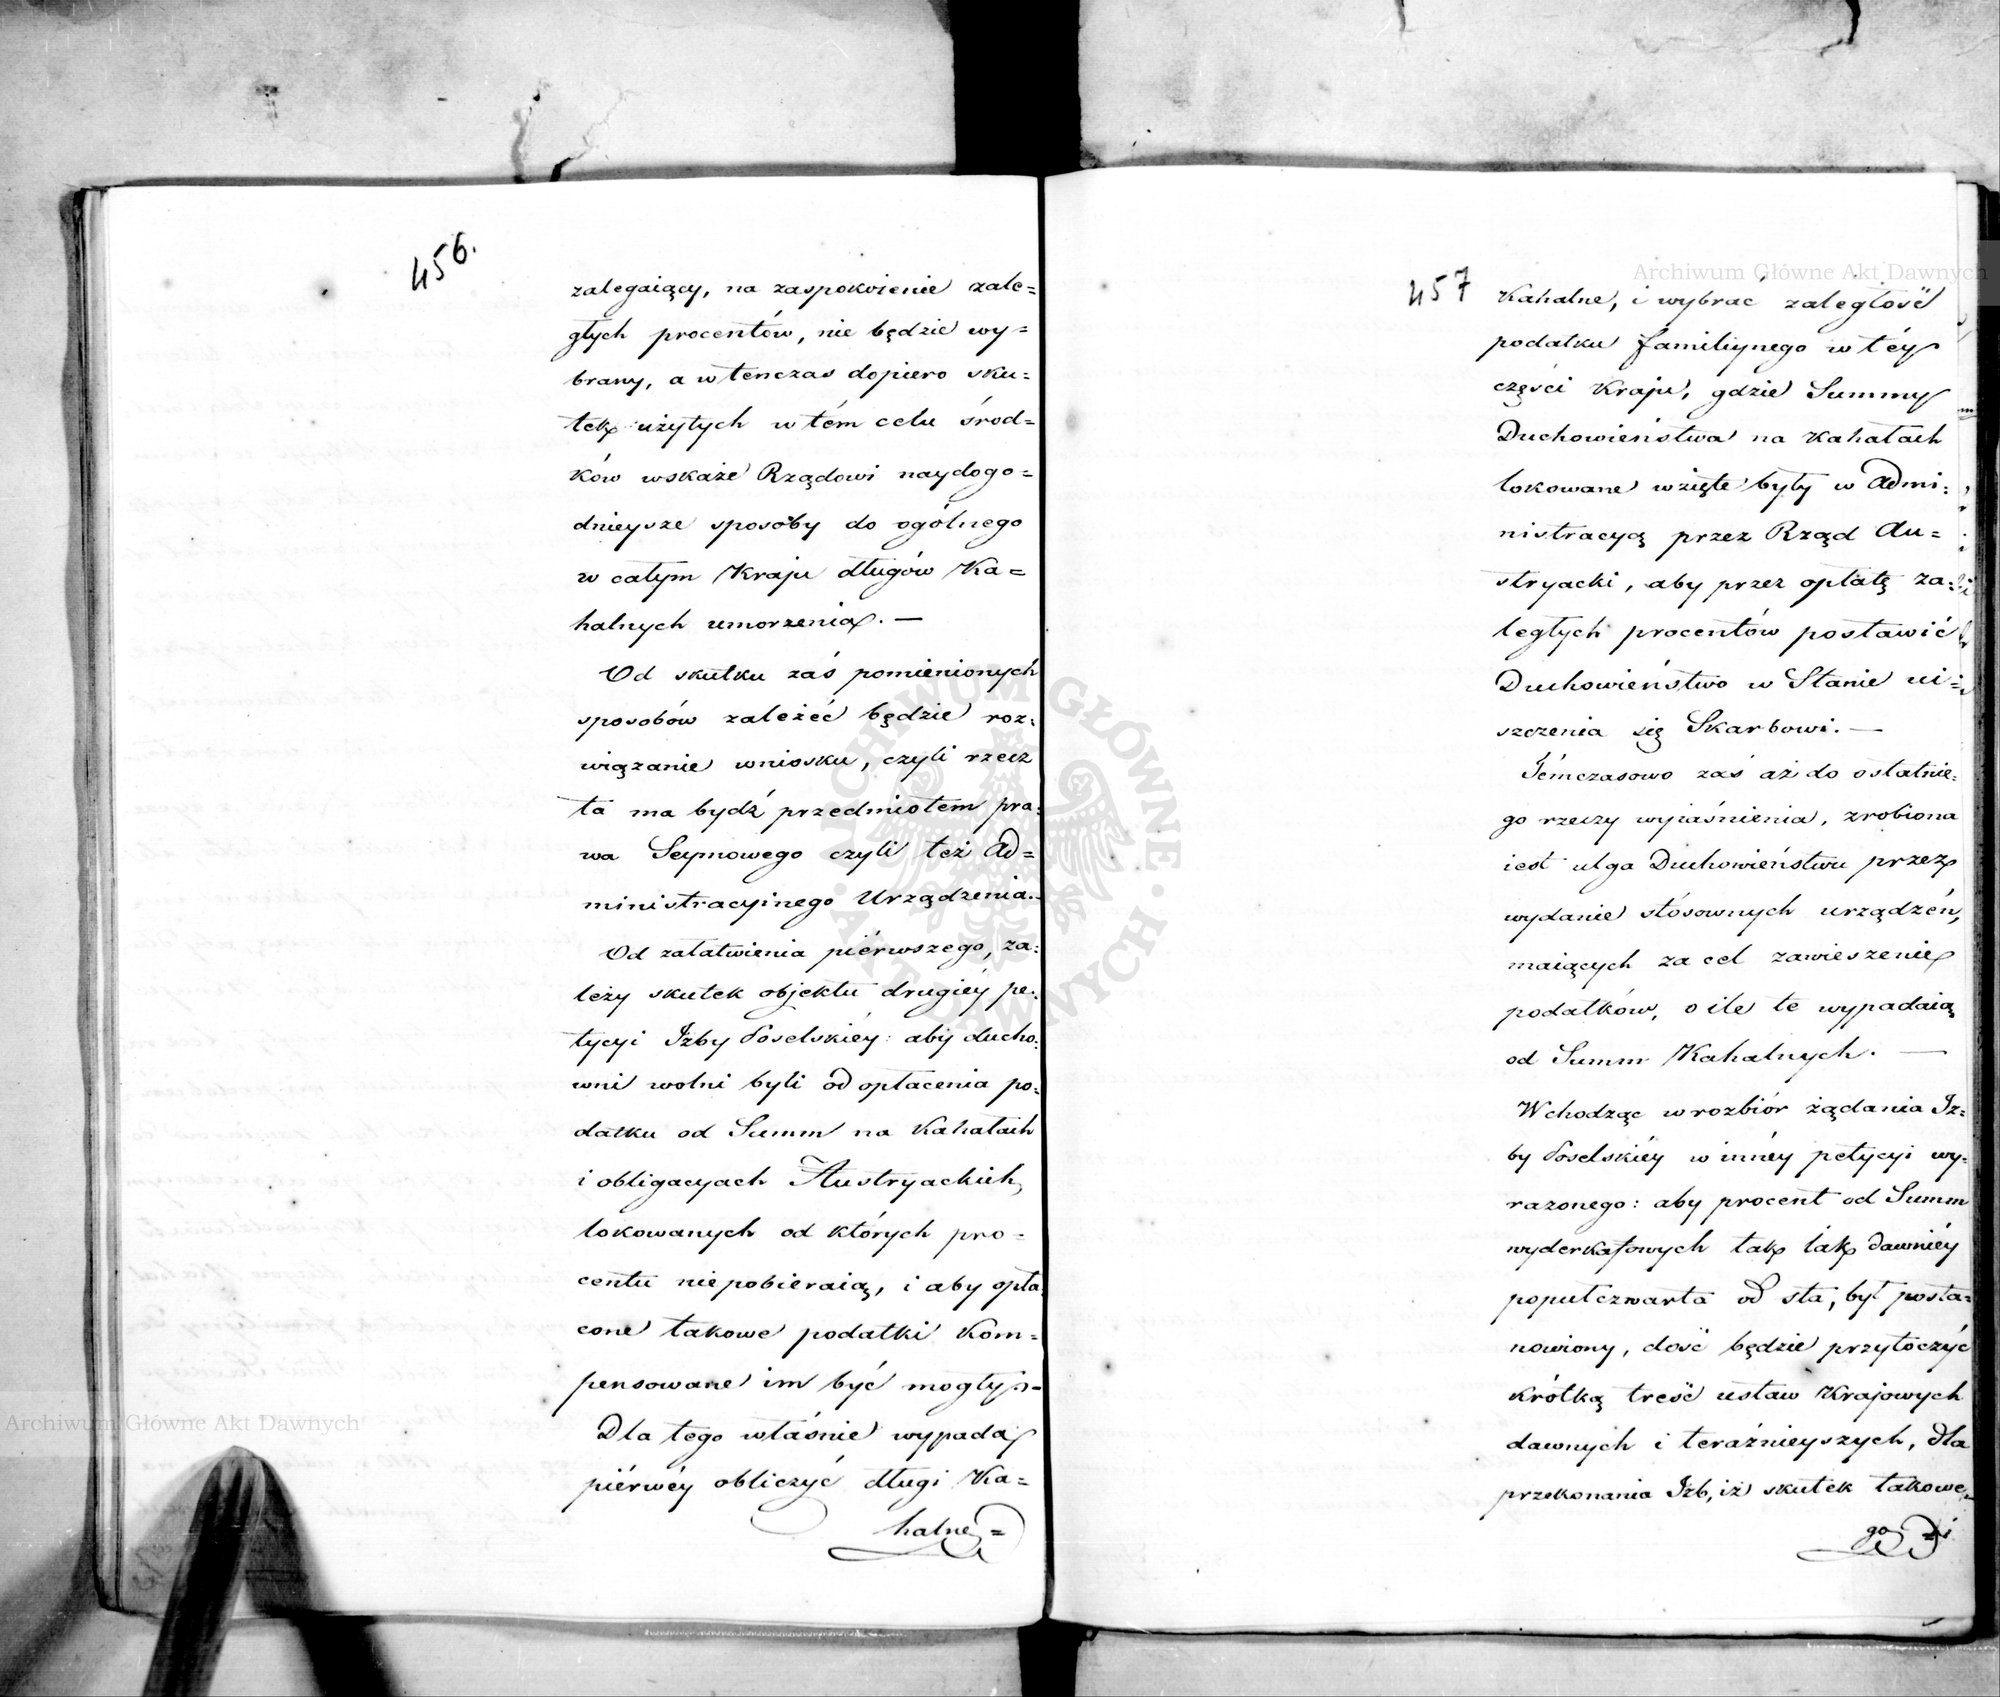 456.
zalegaiący, na zaspokoienie zale=
głych procentów, nie będzie wy=
brany, a wtenczas dopiero sku=
tek użytych w tém celu środ=
ków wskaże Rządowi naydogo=
dnieysze sposoby do ogólnego
w całym Kraju długów Ka=
halnych umorzenia. —
Od skutku zaś pomienionych
sposobów zależéć będzie roz=
wiązanie wniosku, czyli rzecz
ta ma bydź przedmiotem pra=
wa Seymowego czyli też Ad=
ministracyinego Urządzenia.
Od załatwienia piérwszego, za=
leży skutek objektu drugiéy pe=
tycyi Izby Poselskiéy: aby ducho=
wni wolni byli od opłacenia po=
datku od Summ na Kahałach
i obligacyach Austryackich,
lokowanych od których pro=
centu niepobieraią, i aby opła
cone takowe podatki Kom=
pensowane im być mogły. —
Dla tego właśnie wypada
piérwéy obliczyć długi Ka=
halne =
457
Kahalne, i wybrać zaległość
podatku familiynego w téy
części Kraju, gdzie Summy
Duchowieństwa na Kahałach
lokowane wzięte były w Admi=
nistracyą przez Rząd Au=
stryacki, aby przez opłatę za=
ległych procentów postawić
Duchowieństwo w Stanie ui=
szczenia się Skarbowi. —
Témczasowo zaś aż do ostatnie=
go rzeczy wyiaśnienia, zrobiona
iest ulga Duchowieństwu przez
wydanie stósownych urządzeń,
maiących za cel zawieszenie
podatków, o ile te wypadaią
od Summ Kahalnych. —
Wchodząc w rozbiór żądania Iz=
by Poselskiéy w innéy petycyi wy=
rażonego: aby procent od Summ
wyderkafowych tak iak dawniéy
popułczwarta od sta, był posta=
nowiony, dość będzie przytoczyć
krótką treść ustaw Krajowych
dawnych i teraźnieyszych, dla
przekonania Izb, iż skutek takowe=
go =
Archiwum Główne Akt Dawnych
Archiwum Główne Akt Dawnych
ARCHIWUM GŁÓWNE · AKT DAWNYCH ·